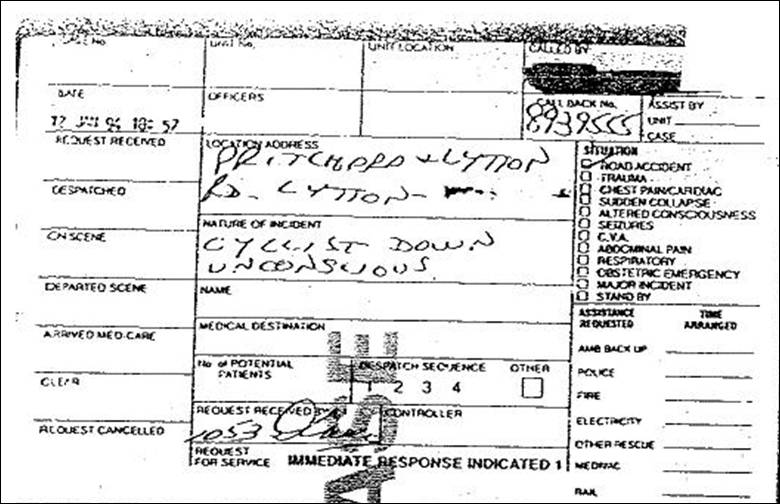 CASE No.
UNIT No.
UNIT LOCATION
CALLED BY
DATE
OFFICERS
CALL BACK No.
ASSIST BY
UNIT
CASE
8939555
REQUEST RECEIVED
LOCATION ADDRESS
PRITCHARD & LYTTON
RD. LYTTON
SITUATION
ROAD ACCIDENT
TRAUMA
CHEST PAIN/CARDIAC
SUDDEN COLLAPSE
ALTERED CONSCIOUSNESS
SEIZURES
C.V.A.
ABDOMINAL PAIN
RESPIRATORY
OBSTETRIC EMERGENCY
MAJOR INCIDENT
STAND BY
DESPATCHED
ON SCENE
NATURE OF INCIDENT
CYCLIST DOWN
UNCONSCIOUS.
DEPARTED SCENE
NAME
ASSISTANCE REQUESTED
TIME ARRANGED
ARRIVED MED-CARE
MEDICAL DESTINATION
AMB BACK UP
No of POTENTIAL PATIENTS
DESPATCH SEQUENCE
OTHER
1 2 3 4
POLICE
CLEAR
FIRE
REQUEST RECEIVED BY
CONTROLLER
ELECTRICITY
REQUEST CANCELLED
1053
OTHER RESCUE
REQUEST FOR SERVICE
IMMEDIATE RESPONSE INDICATED 1
MEDIVAC
RAIL